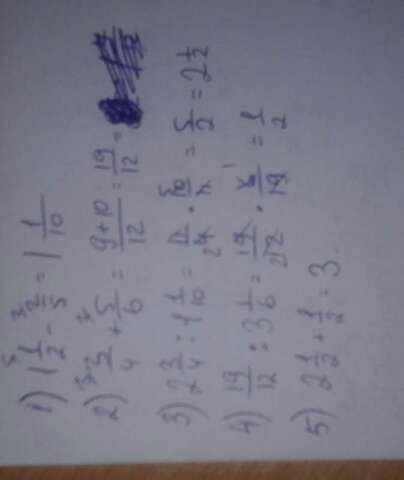 1) 1 1/2 - 2/5 = 1 1/10
2) 3/4 + 5/6 = 9+10/12 = 19/12 =
3) 2 3/4 : 1 1/10 = 11/4 · 10/11 = 5/2 = 2 1/2
4) 19/12 : 3 1/6 = 19/12 · 6/19 = 1/2
5) 2 1/2 + 1/2 = 3.